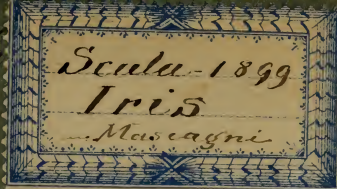 Scala-1899
Iris
Mascagni